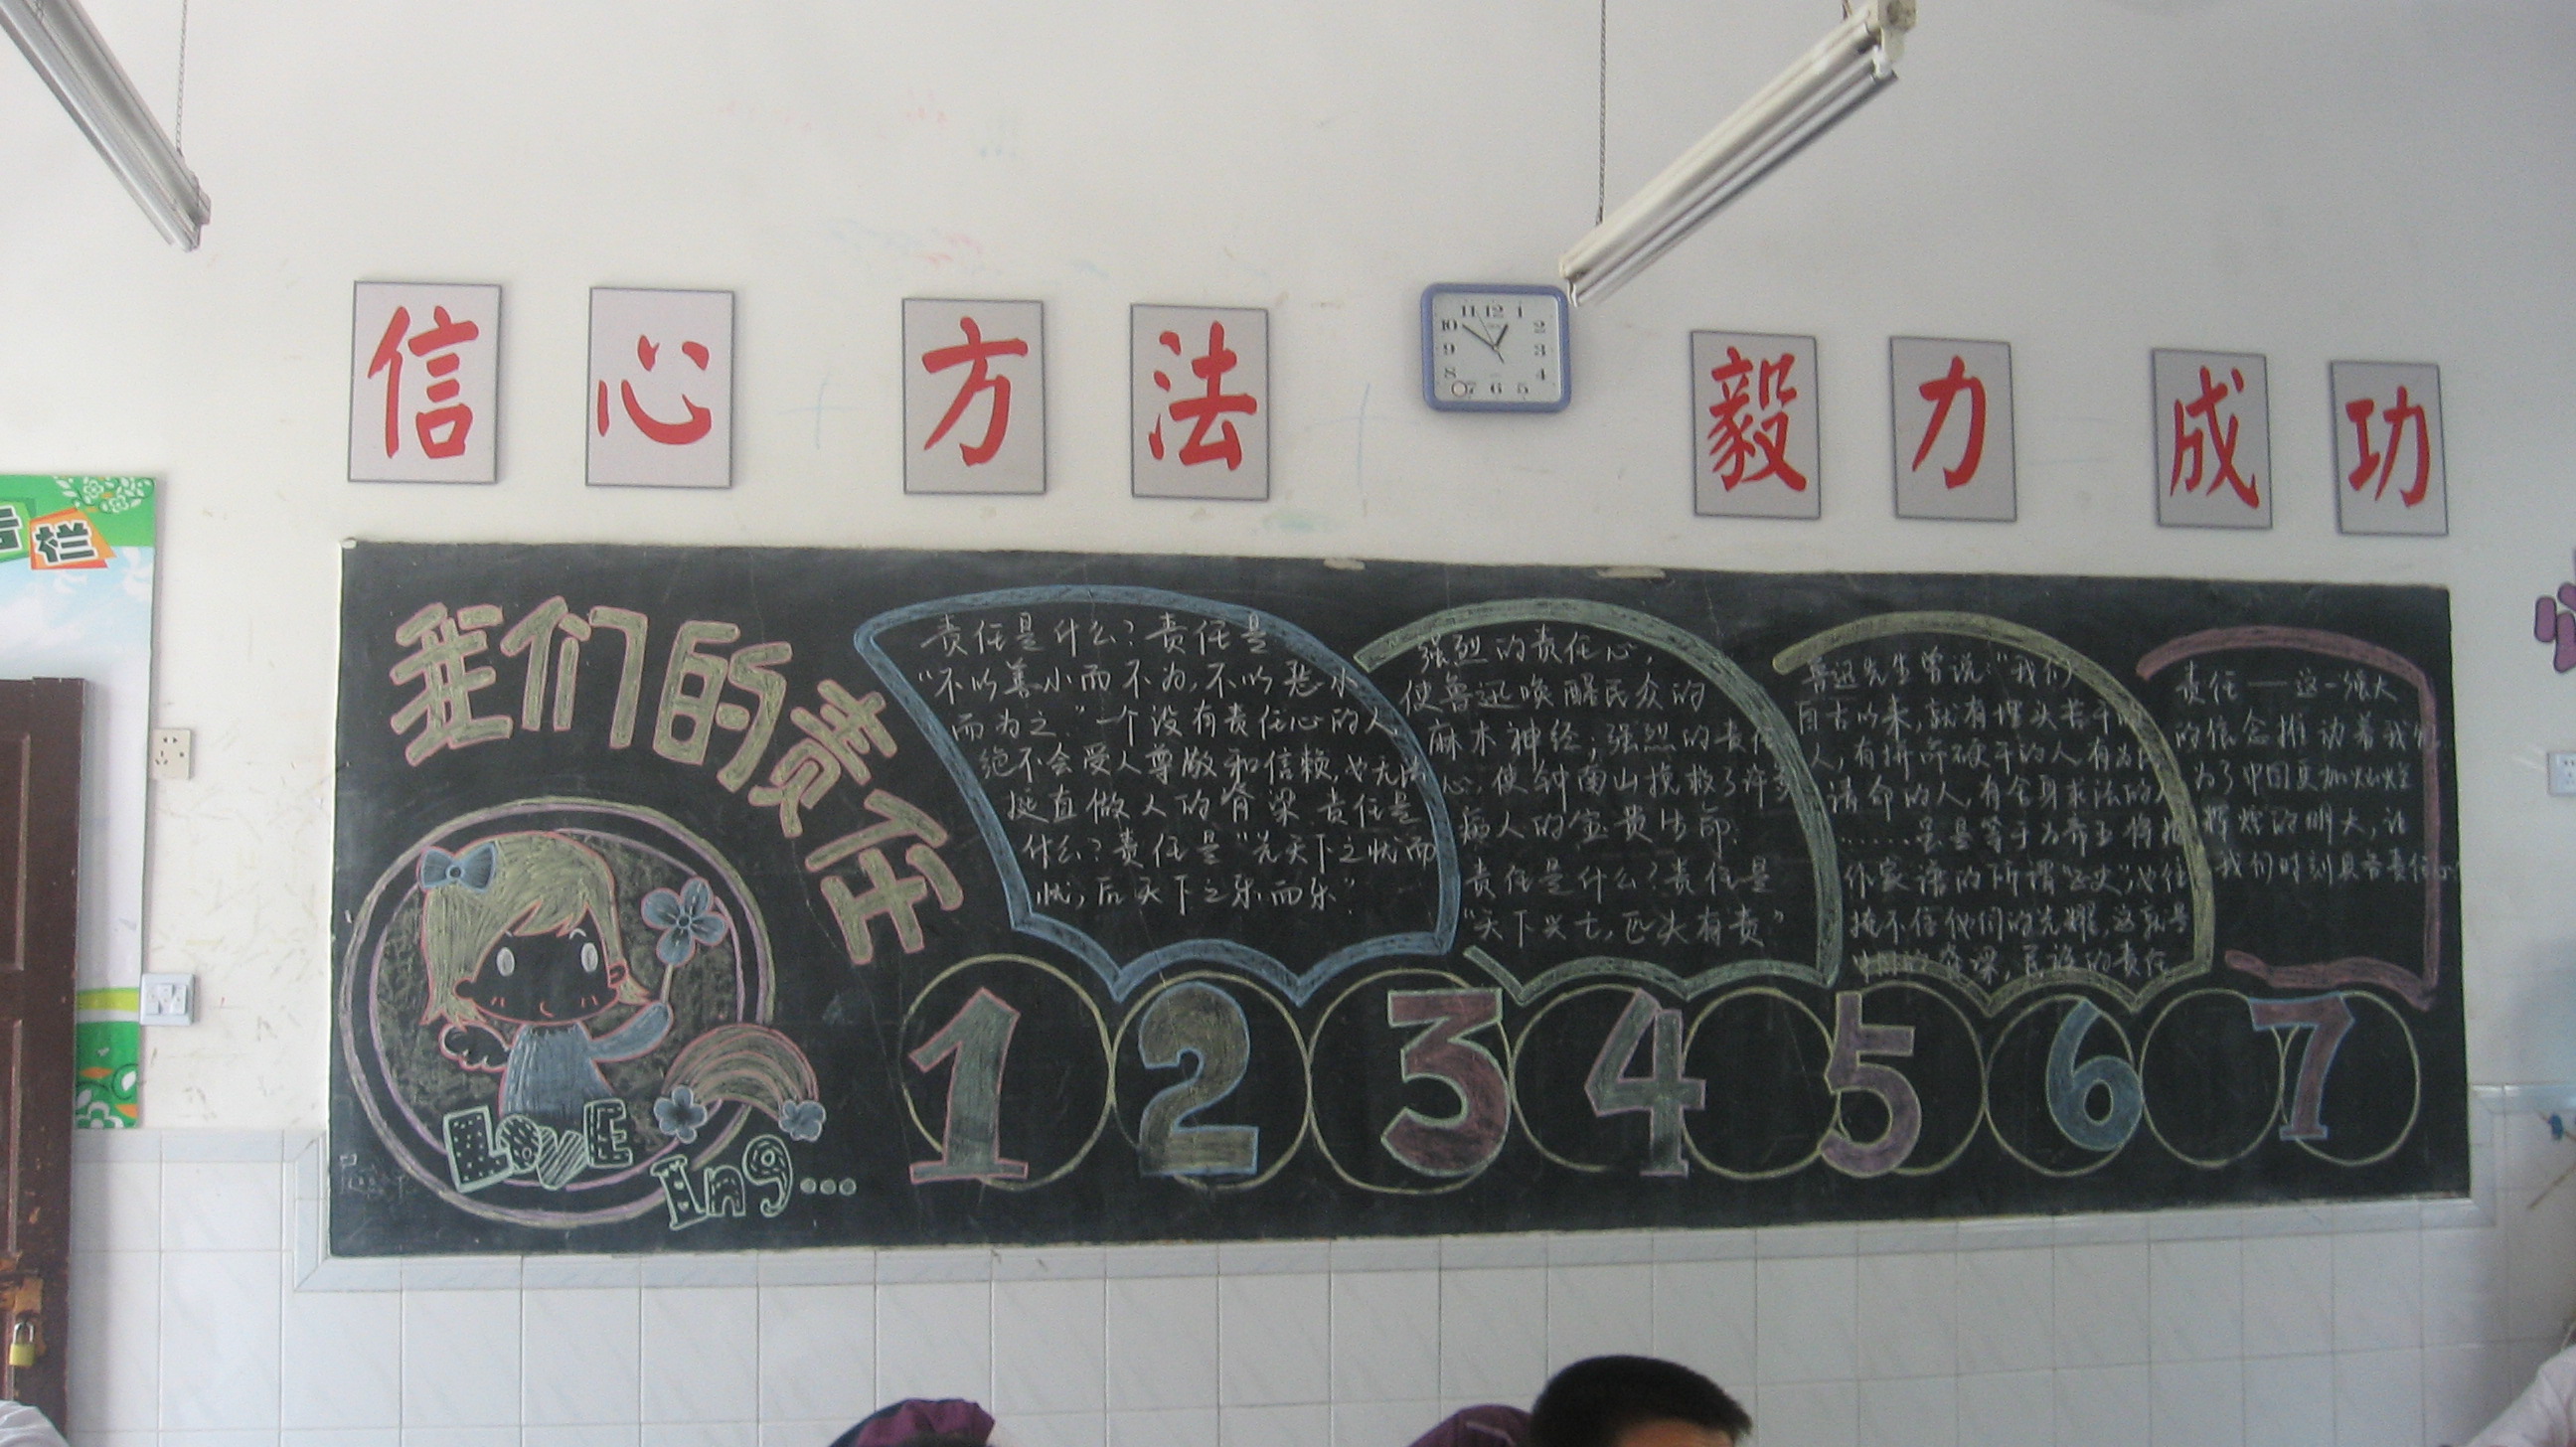 信 心 方 法 毅 力 成 功
11 12 1
10 2
9 3
8 4
6 5
栏
我们的责任
责任是什么？责任是
“不以善小而不为，不以恶小
而为之.”一个没有责任心的人,
绝不会受人尊敬和信赖,也无法
挺直做人的脊梁.责任是
什么？责任是“先天下之忧而
忧，后天下之乐而乐”.
强烈的责任心，
使鲁迅唤醒民众的
麻木神经；强烈的责任
心，使钟南山挽救了许多
病人的宝贵生命.
责任是什么？责任是
“天下兴亡，匹夫有责”
鲁迅先生曾说：“我们
自古以来，就有埋头苦干的
人，有拼命硬干的人有为民
请命的人，有舍身求法的人
……虽是等于为帝王将相
作家谱的所谓“正史”，也往
掩不住他们的光耀，这就是
中国的脊梁，民族的责任
责任——这一强大
的信念推动着我们
为了中国更加灿烂
辉煌的明天，让
我们时刻具备责任心
LOVE
Ing...
1 2 3 4 5 6 7